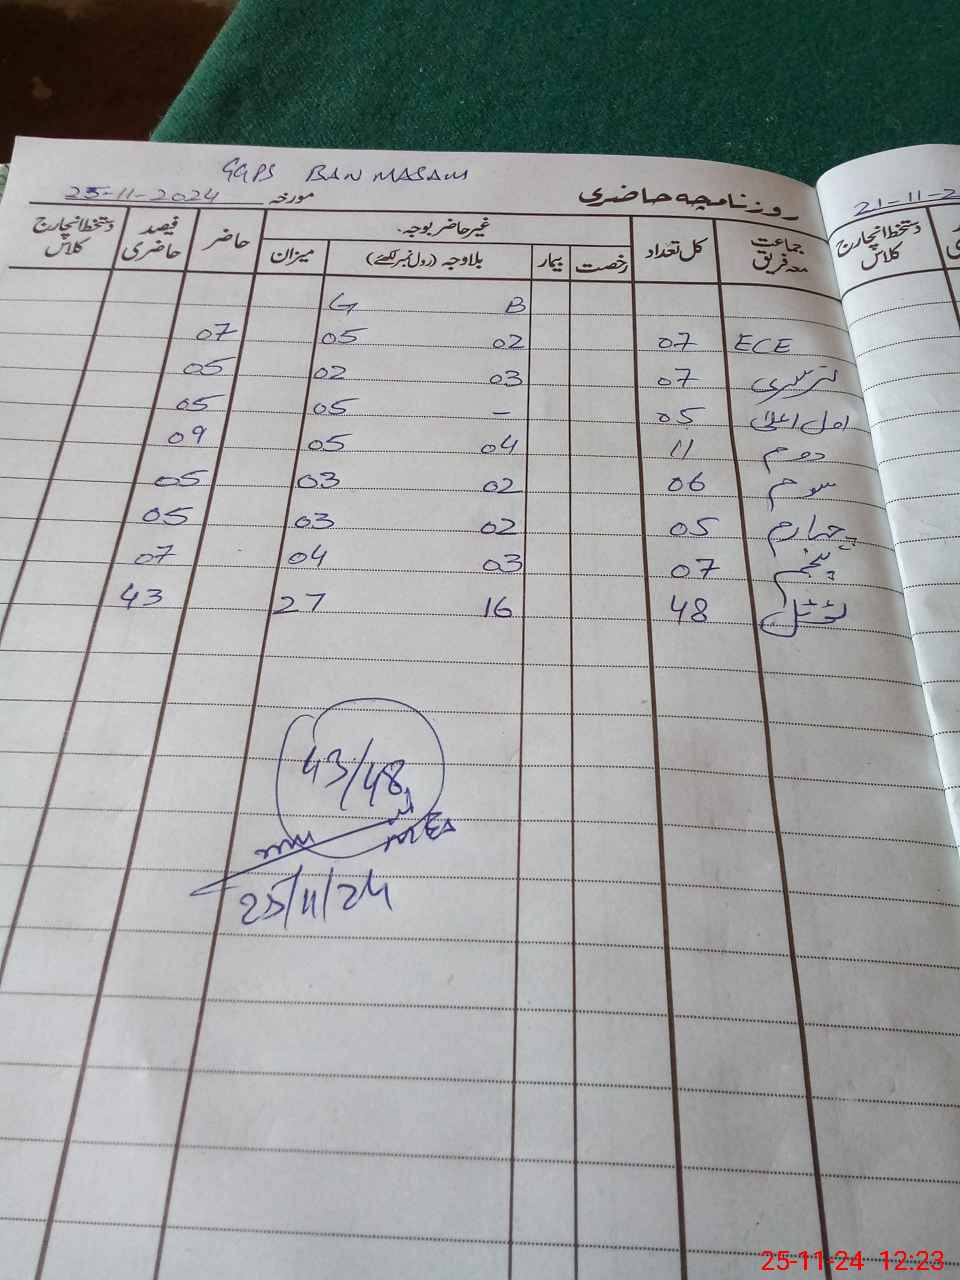 GGPS BAN MASAM
روزنامچہ حاضری مورخہ 25-11-2024
جماعت معہ فریق کل تعداد غیر حاضر بوجہ حاضر فیصد حاضری دستخط انچارج کلاس
رخصت بیمار بلاوجہ (رول نمبر لکھئے) میزان
B G
ECE 07 02 05 07
نرسری 07 03 02 05
اول اعلیٰ 05 - 05 05
دوم 11 04 05 09
سوم 06 02 03 05
چہارم 05 02 03 05
پنجم 07 03 04 07
ٹوٹل 48 16 27 43
43/48
25/11/24
21-11-2
دستخط انچارج کلاس
25-11-24 12:23